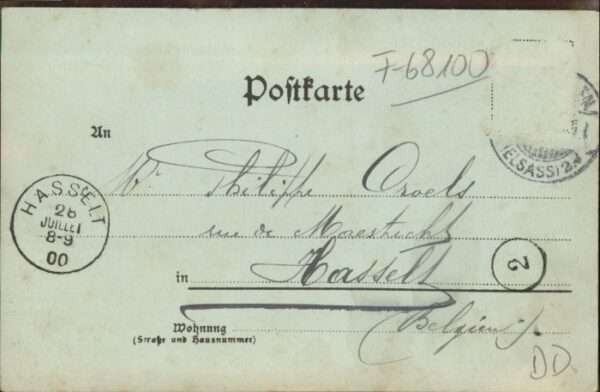 F-68100
Postkarte
An
Mr Philippe Croels
rue de Maestricht
in Hasselt
(Belgique).
Wohnung
(Straße und Hausnummer)
HASSELT
28
JUILLET
8-9
00
(ELSASS) 2
2
DD.